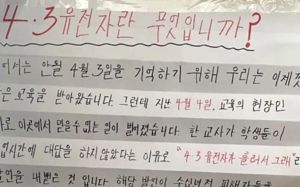 4·3유전자란 무엇입니까?
에서는 안월 4월 3일을 기억하기 위해 우리는 이제껏
은 교육을 받아왔습니다. 그런데 지난 4월 4일, 교육의 현장인
바로 이곳에서 믿을수 없는 일이 벌어졌습니다. 한 교사가 학생들이
업시간에 대답을 하지 않았다는 이유로 "4·3유전자가 흘러서 그래"라
발언을 내뱉은 것 입니다. 해당 발언이 수십년전 피해자들을